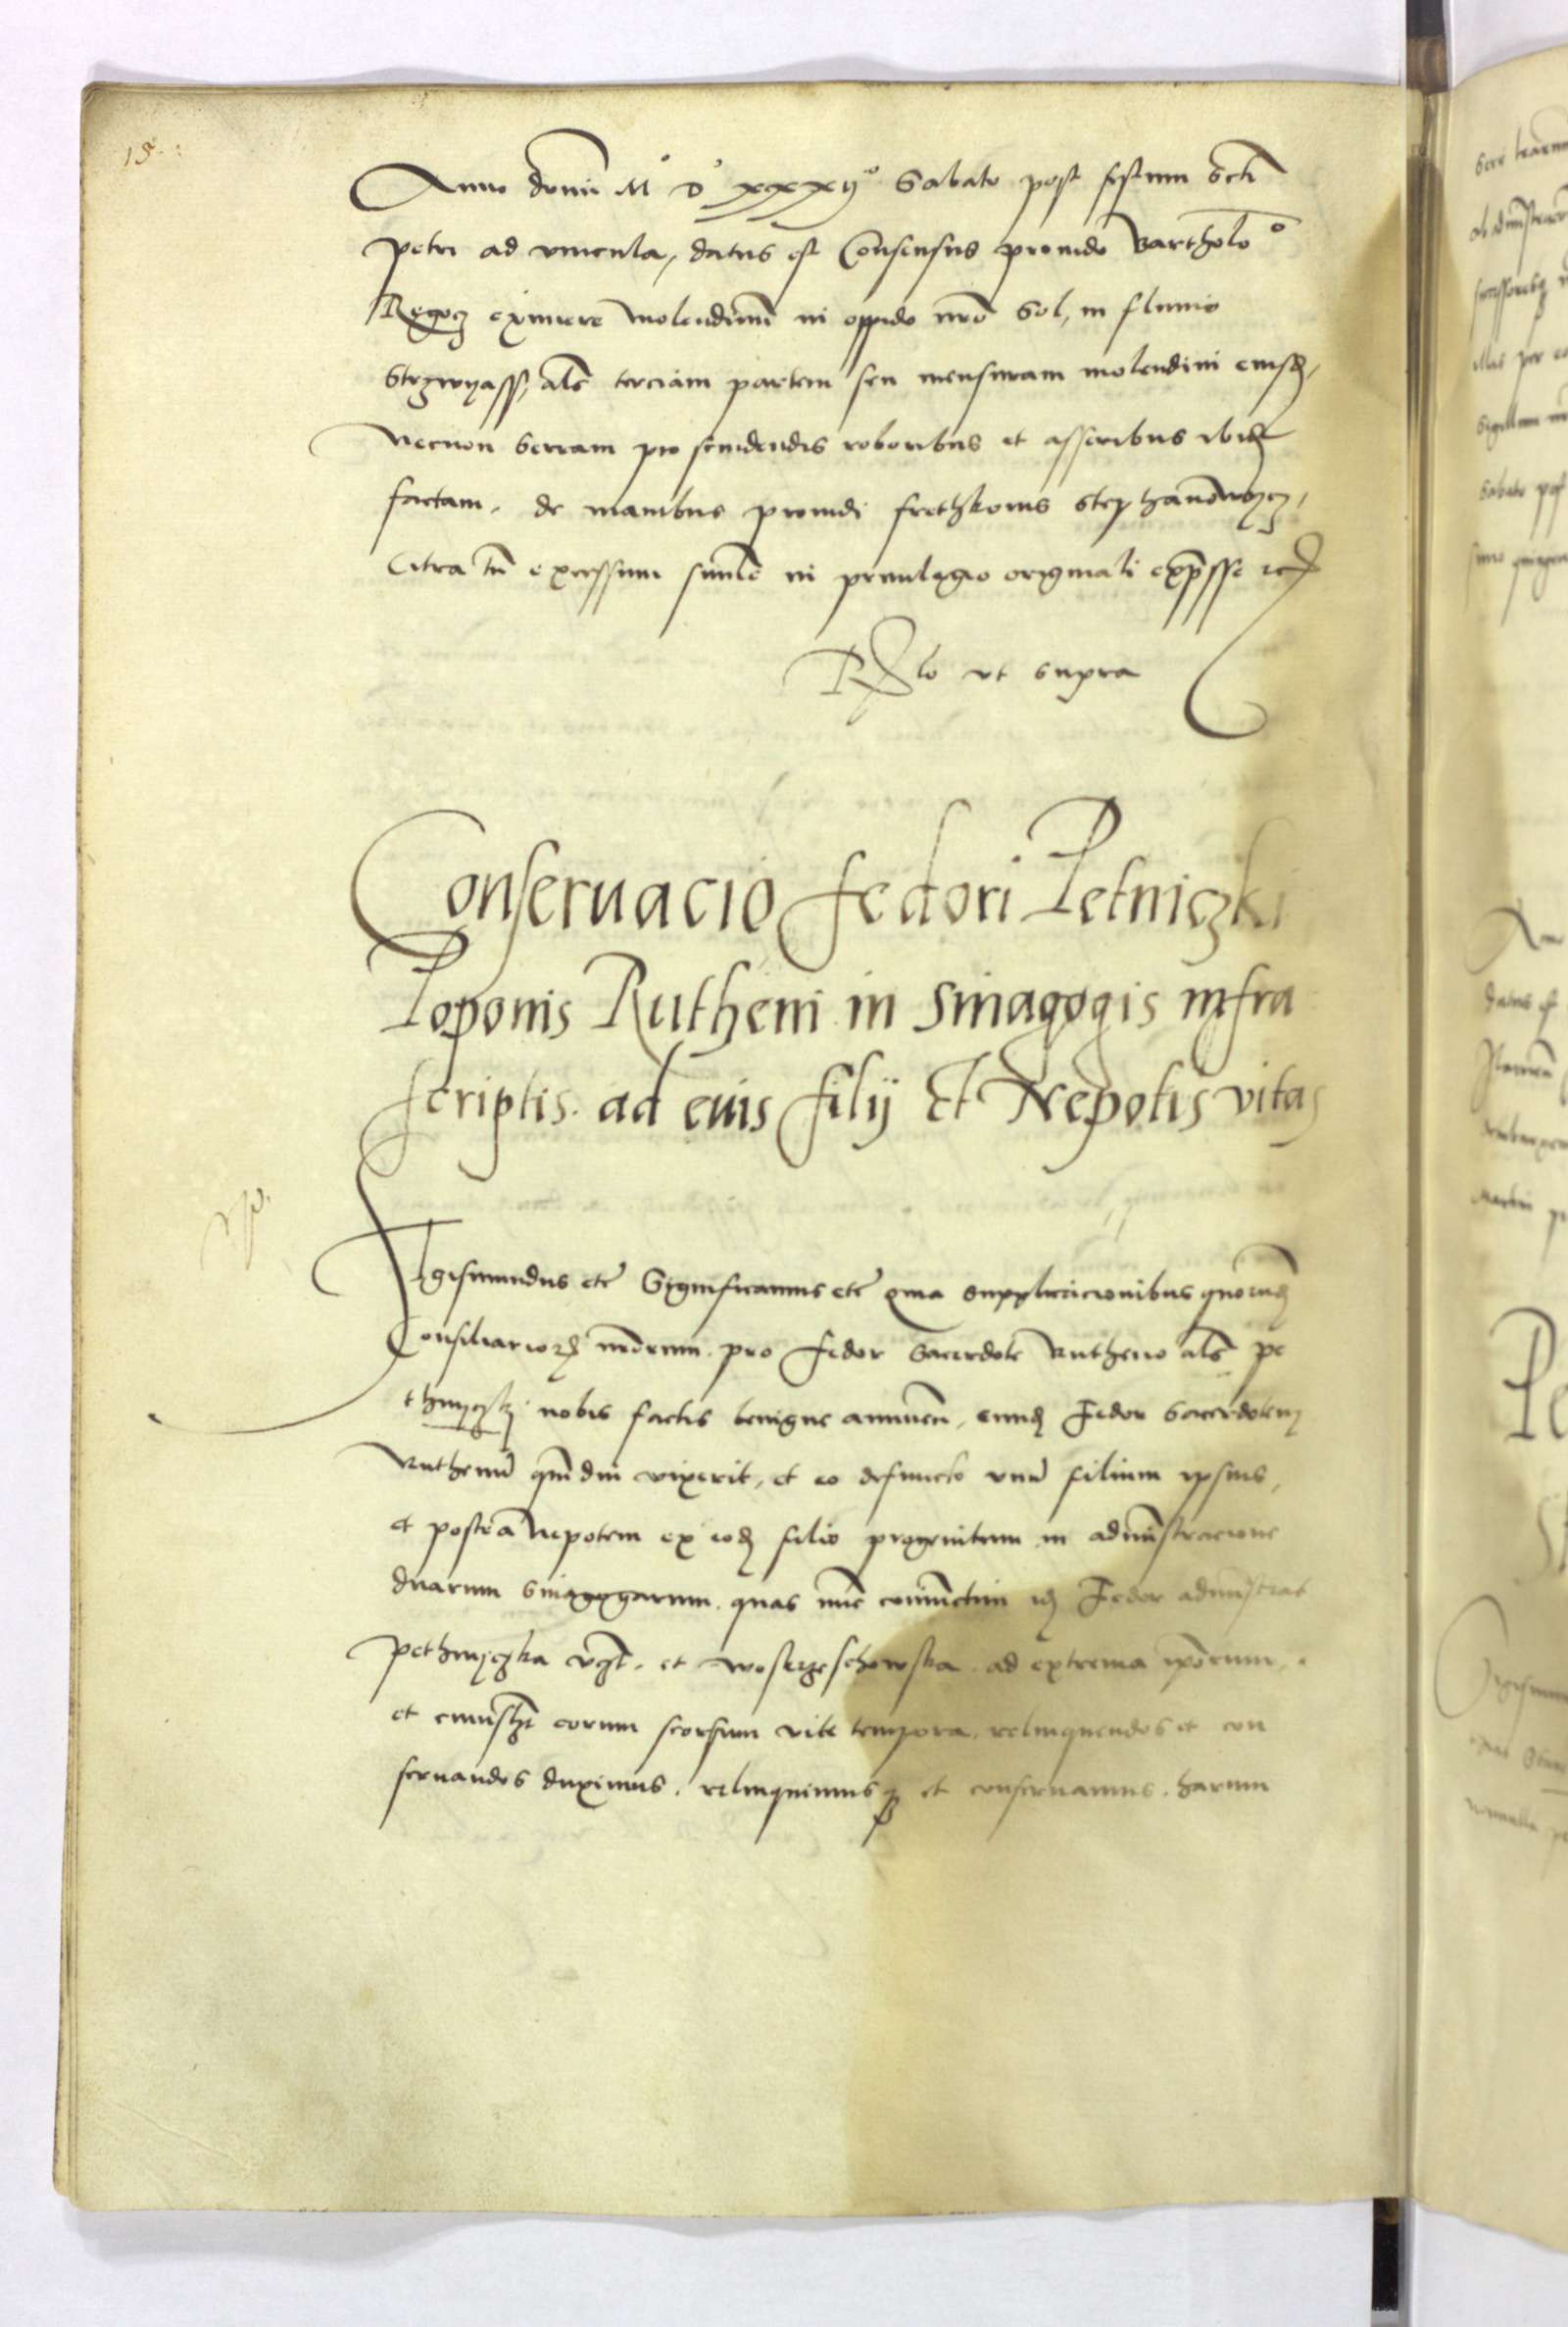 18.
Anno domi M° D° xxxij° Sabato post festum Scti
Petri ad vincula, datus est Consensus prouido Bartholo°
Regocz eximere molendinum in oppido nro Sol, in fluuio
Strzwyass, als terciam partem seu mensuram molendini eiusd,
necnon serram pro scindendis roboribus et asseribus ibid
factam, de manibus prouidi frethkonis Stephanowycz,
Citra tn excessum summe in priuilegio originali expsse
Rlo vt supra
Conseruacio Fedori Petniczki
Poponis Rutheni in Sinagogis infra
scriptis ad eius filij Et Nepotis vitas
Sigismundus etc Significamus etc quia supplicacionibus quorund
Consiliarior nrorum pro Fedor Sacerdote Rutheno als pe
thnyczky nobis factis benigne annuen, eund Fedor Sacerdotem
Ruthenu qmdiu vixerit, et eo defuncto vnu filium ipsius,
et postea nepotem ex eod filio progenitum in administracione
duarum Sinagogarum quas nunc coniunctim id Fedor administrat
pethnyczka vzt. et woskrzeschowska ad extrema iporum
et cuiuslibet eorum seorsum vite tempora relinquendos et con
seruandos duximus. relinquimusq et conseruamus. harum